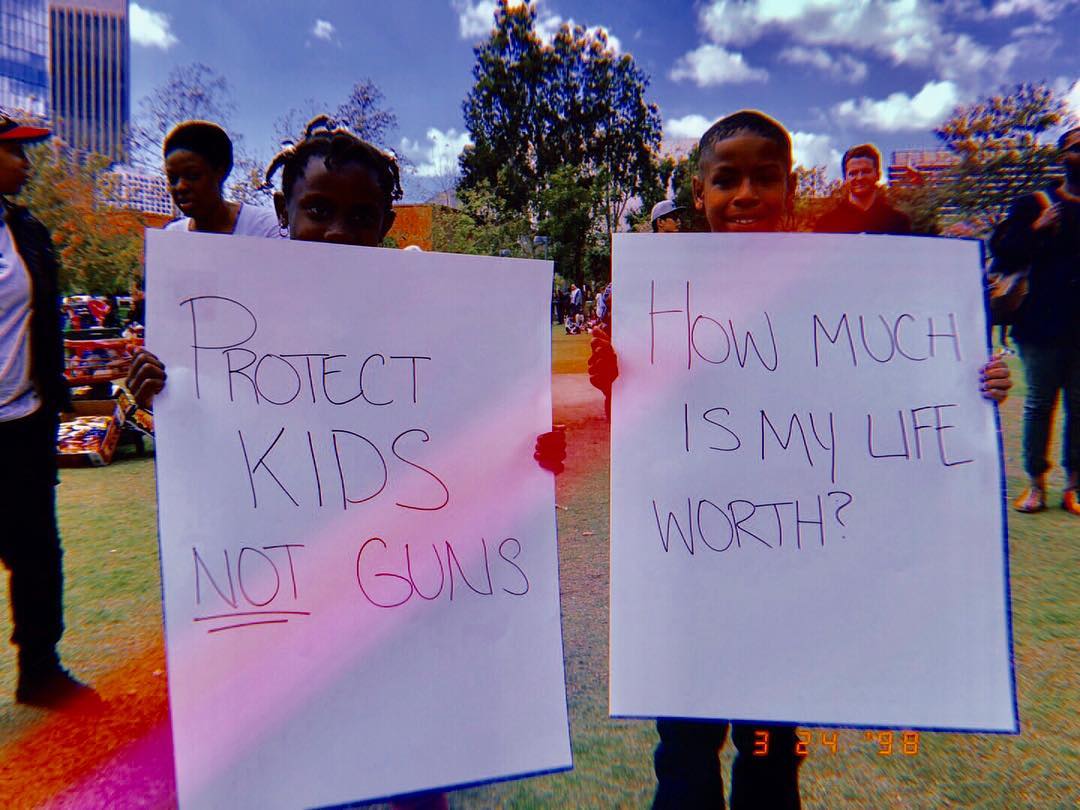 PROTECT
KIDS
NOT GUNS
HOW MUCH
IS MY LIFE
WORTH?
3 24 '98